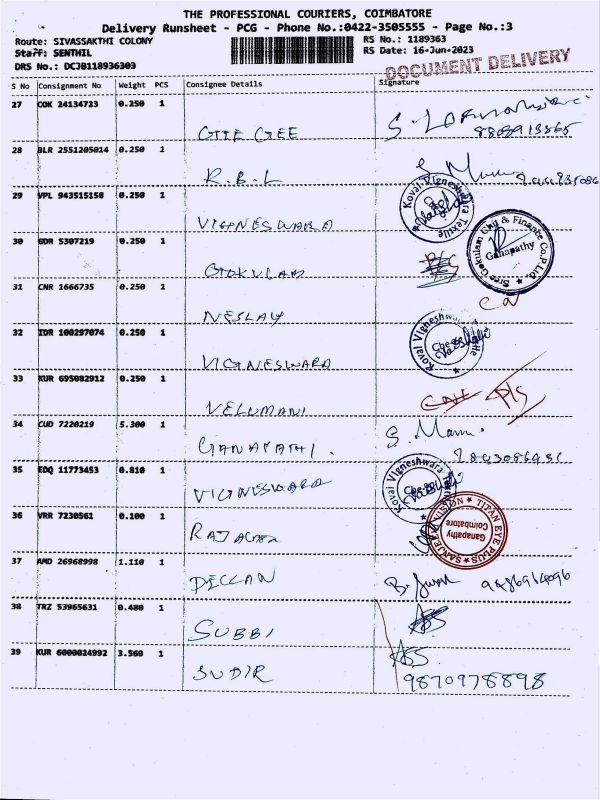 THE PROFESSIONAL COURIERS, COIMBATORE
Delivery Runsheet - PCG - Phone No.:0422-3505555 - Page No.:3
Route: SIVASSAKTHI COLONY
Staff: SENTHIL
DRS No.: DCJB118936303
RS No.: 1189363
RS Date: 16-Jun-2023
DOCUMENT DELIVERY
S No Consignment No Weight PCS Consignee Details Signature
27 COK 24134723 0.250 1
GEE GEE
28 BLR 2551205014 0.250 1
R.B.L
29 VPL 943515158 0.250 1
VIGNESWARA
Koval Vigneshwara Textile
30 GDR 5307219 0.250 1
GOKULAM
Sree Gokulam Chit & Finance Co.P.Ltd.
Ganapathy
31 CNR 1666735 0.250 1
NESLAY
32 IDR 100297074 0.250 1
VIGNESWARA
Koval Vigneshwara Textile
33 KUR 695082912 0.250 1
VELUMANI
34 CUD 7220219 5.300 1
GANAPATHI.
35 EDQ 11773453 0.810 1
VIGNESWARA
Koval Vigneshwara Textile
36 VRR 7230561 0.100 1
TITAN EYE PLUS SANJEEV VISION
Ganapathy
Coimbatore
37 AMD 26968998 1.110 1
DECCAN
38 TRZ 53965631 0.480 1
SUBBI
39 KUR 6000024992 3.560 1
SUDIR
9870978898